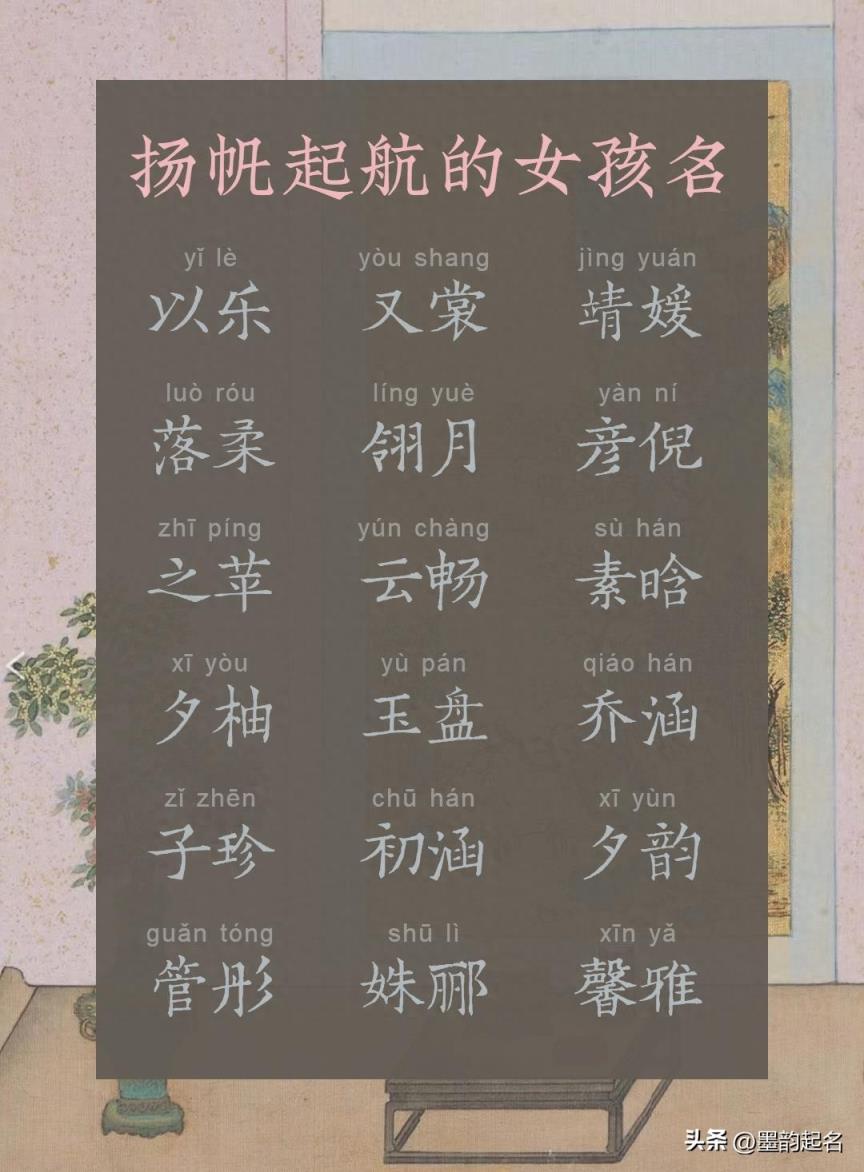 扬帆起航的女孩名
yǐ lè yòu shang jìng yuán
以乐 又裳 靖媛
luò róu líng yuè yàn ní
落柔 翎月 彦倪
zhī píng yún chàng sù hán
之苹 云畅 素晗
xī yòu yù pán qiáo hán
夕柚 玉盘 乔涵
zǐ zhēn chū hán xī yùn
子珍 初涵 夕韵
guǎn tóng shū lì xīn yǎ
管彤 姝郦 馨雅
头条 @墨韵起名